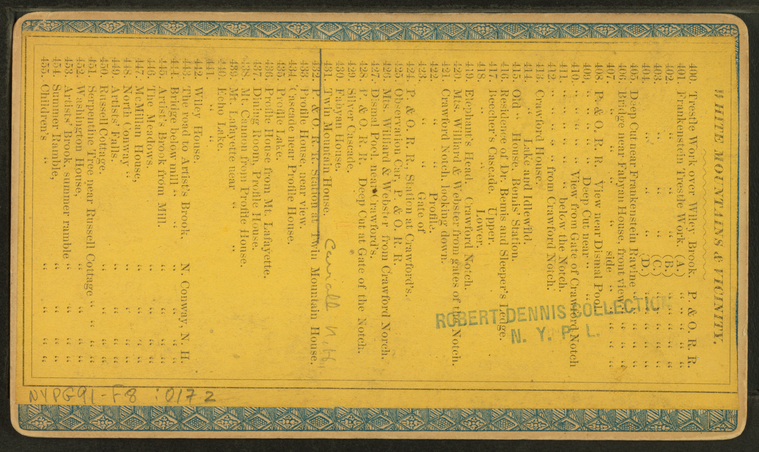 WHITE MOUNTAINS & VICINITY.
400. Trestle Work over Wiley Brook. P. & O. R. R.
401. Frankenstein Trestle Work. (A.) " " "
402. " " " (B.) " " "
403. " " " (C.) " " "
404. " " " (D.) " " "
405. Deep Cut near Frankenstein Ravine " " "
406. Bridge near Fabyan House, front view " "
407. " " " " side " " "
408. P. & O. R. R. View near Dismal Pool.
409. " " " " Deep Cut near " "
410. " " " " View from Gate of Crawford Notch
411. " " " " below the Notch.
412. " " " " from Crawford Notch.
413. Crawford House.
414. " " Lake and Idlewild.
415. Old " House, Bemis' Station.
416. Residence of Dr. Bemis and Sleeper's Ledge.
417. Beecher's Cascade. Upper.
418. " " Lower.
419. Elephant's Head. Crawford Notch.
420. Mts. Williard & Webster from gates of the Notch.
421. Crawford Notch, looking down.
422. " " Profile.
423. " " Gate of
424. P. & O. R. R. Station at Crawford's.
425. Observation Car, P. & O. R. R.
426. Mts. Williard & Webster from Crawford Notch.
427. Dismal Pool, near Crawford's.
428. P. & O. R. R. Deep Cut at Gate of the Notch.
429. Silver Cascade.
430. Fabyant House.
431. Twin Mountain House.
432. P. & O. R. R. Station at Twin Mountain House.
433. Profile House, near view.
434. Cascade near Profile House.
435. Profile Lake.
436. Profile House, from Mt. Lafayette.
437. Dining Room, Profile House.
438. Mt. Cannon from Profile House.
439. Mt. Lafayette near " "
440. Echo Lake.
441. " "
442. Wiley House.
443. The road to Artist's Brook. N. Conway, N. H.
444. Bridge below mill " " " "
445. Artist's Brook from Mill. " " "
446. The Meadows. " " "
447. McMillan House, " " "
448. North Conway " " "
449. Artists' Falls. " " "
450. Russell Cottage. " " "
451. Serpentine Tree near Russell Cottage " " "
452. Washington House. " " "
453. Artists' Brook, summer ramble " " "
454. Summer Ramble, " " "
455. Children's " " " "
Carroll N.H.
ROBERT DENNIS COLLECTION
N. Y. P. L.
NYPG91-F8 :0172